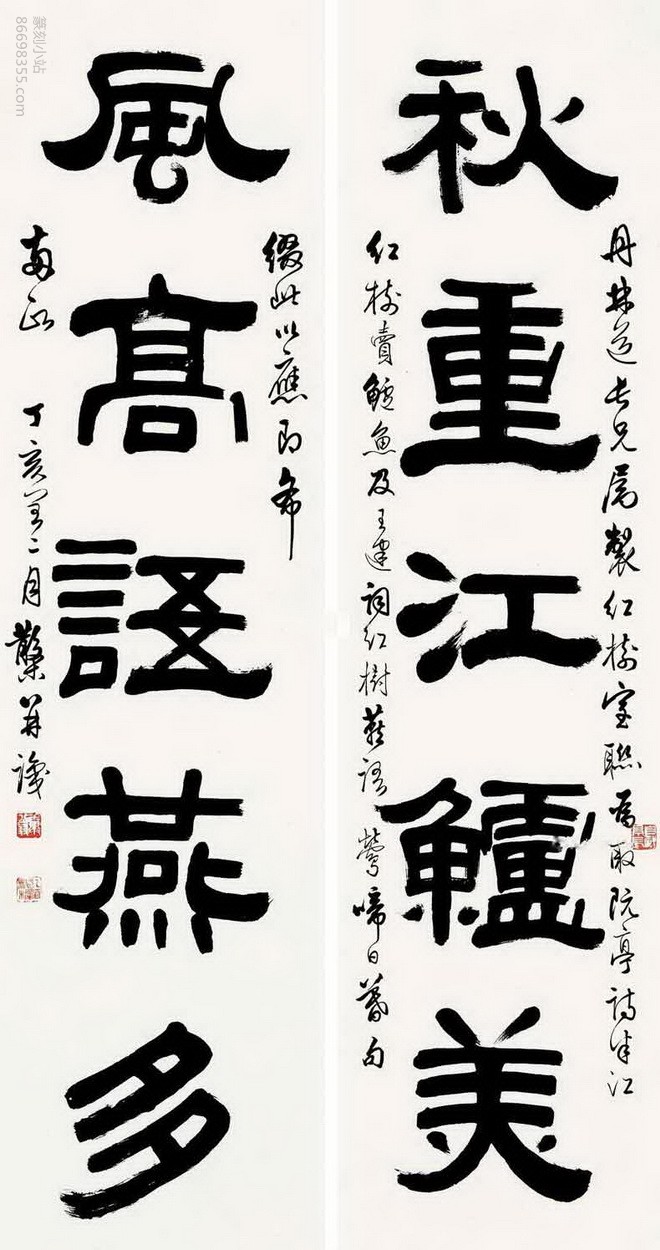 丹林道長兄屬製紅樹室聯為取阮亭詩半江
秋重江鱸美
紅樹賣鱸魚及王建詞紅樹燕語鶯啼日暮句
綴此以應即希
風高語燕多
正 丁亥 二月 并識
篆刻小站
86698355.com